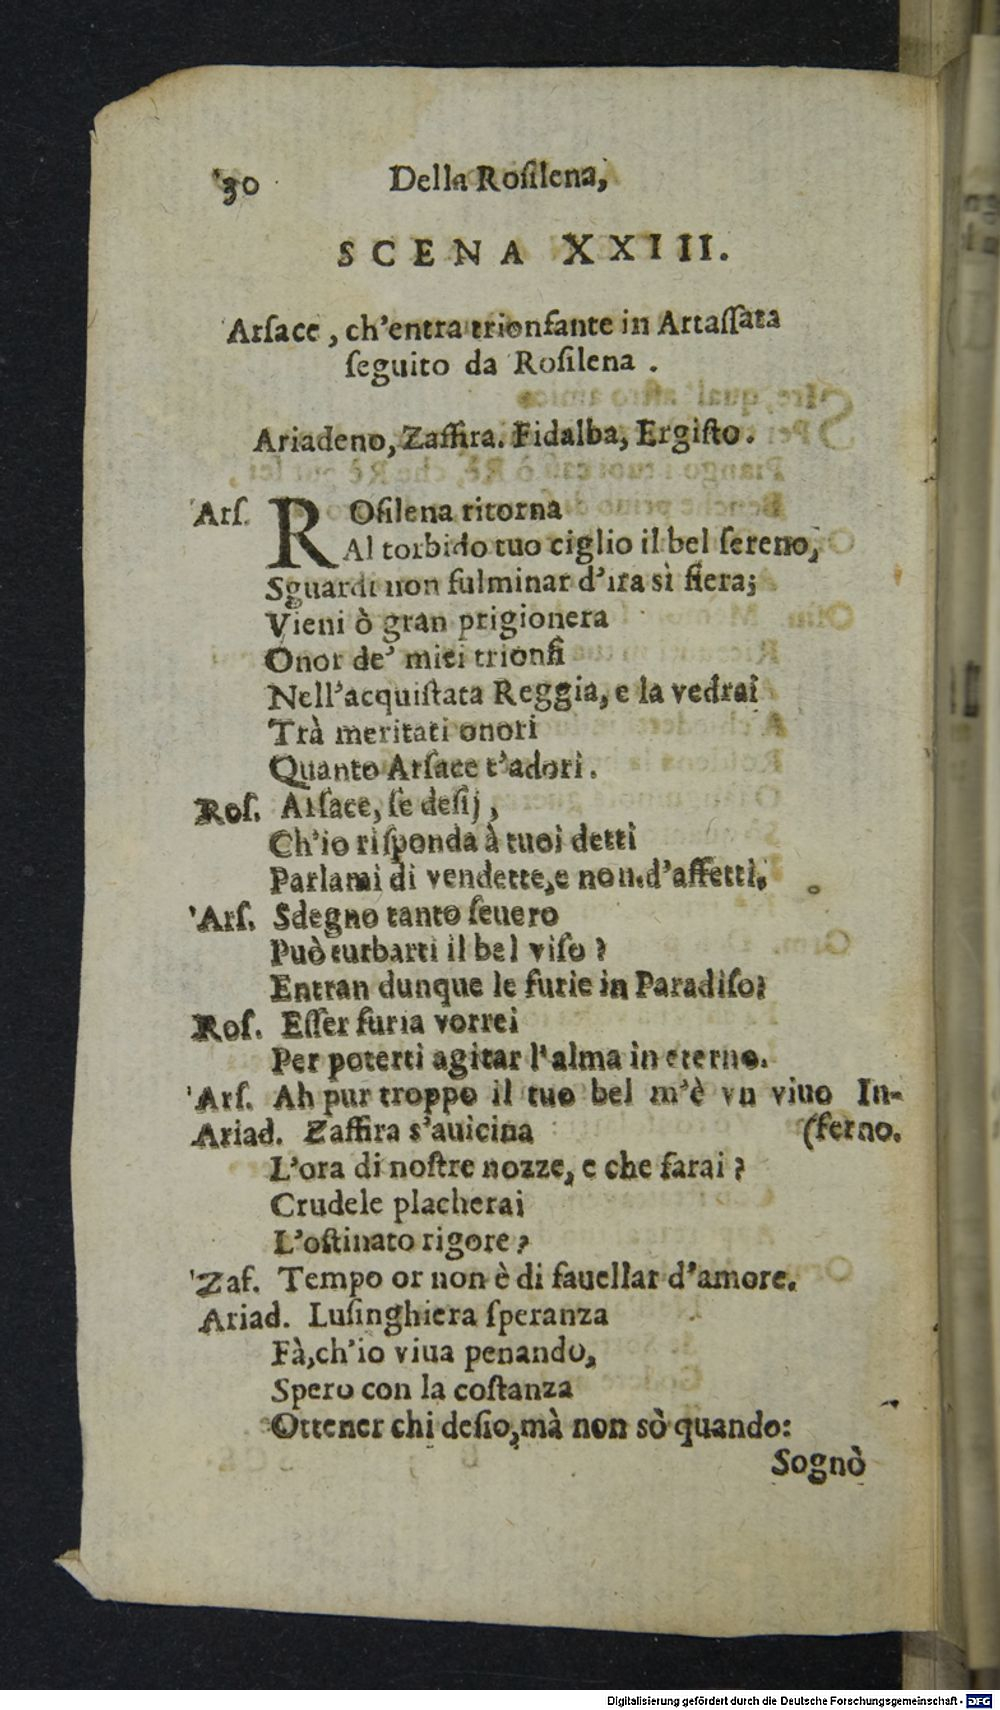 30 Della Roſilena,
SCENA XXIII.
Arſace, ch'entra trionfante in Artaſſata
ſeguito da Roſilena.
Ariadeno, Zaffira. Fidalba, Ergiſto.
Arſ. ROſilena ritorna
Al torbido tuo ciglio il bel ſereno,
Sguardi non fulminar d'ira sì fiera;
Vieni ò gran prigionera
Onor de' miei trionfi
Nell'acquiſtata Reggia, e la vedrai
Trà meritati onori
Quanto Arſace t'adori.
Roſ. Arſace, ſe deſij,
Ch'io riſponda à tuoi detti
Parlami di vendette, e non d'affetti.
Arſ. Sdegno tanto ſeuero
Può turbarti il bel viſo?
Entran dunque le furie in Paradiſo?
Roſ. Eſſer furia vorrei
Per poterti agitar l'alma in eterno.
Arſ. Ah pur troppo il tuo bel m'è vn viuo In-
Ariad. Zaffira s'auicina (ferno.
L'ora di noſtre nozze, e che farai?
Crudele placherai
L'oſtinato rigore?
Zaf. Tempo or non è di fauellar d'amore.
Ariad. Luſinghiera ſperanza
Fà, ch'io viua penando,
Spero con la coſtanza
Ottener chi deſio, mà non sò quando:
Sognò
Digitalisierung gefördert durch die Deutsche Forschungsgemeinschaft - DFG